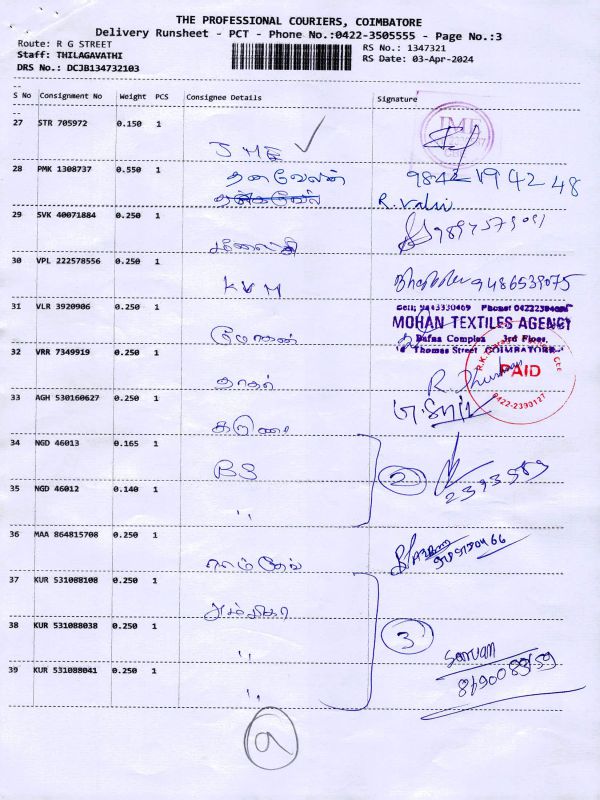 THE PROFESSIONAL COURIERS, COIMBATORE
Delivery Runsheet - PCT - Phone No.:0422-3505555 - Page No.:3
Route: R G STREET
RS No.: 1347321
Staff: THILAGAVATHI
RS Date: 03-Apr-2024
DRS No.: DCJB134732103
S No Consignment No Weight PCS Consignee Details Signature
27 STR 705972 0.150 1
JME
28 PMK 1308737 0.550 1
தனவேலன்
9842194248
R. Valli
29 SVK 40071884 0.250 1
30 VPL 222578556 0.250 1
KVM
9486539075
31 VLR 3920906 0.250 1
மோகன்
Cell: 9443330469 Phone: 0422
MOHAN TEXTILES AGENCY
Bafna Complex 3rd Floor,
Thomas Street COIMBATORE
32 VRR 7349919 0.250 1
PAID
0422-2390127
33 AGH 530160627 0.250 1
கருணை
34 NGD 46013 0.165 1
BS
2
2393589
35 NGD 46012 0.140 1
"
36 MAA 864815708 0.250 1
ராம்தேவ்
37 KUR 531088108 0.250 1
அம்பிகா
38 KUR 531088038 0.250 1
"
3
Sarvam
39 KUR 531088041 0.250 1
"
9